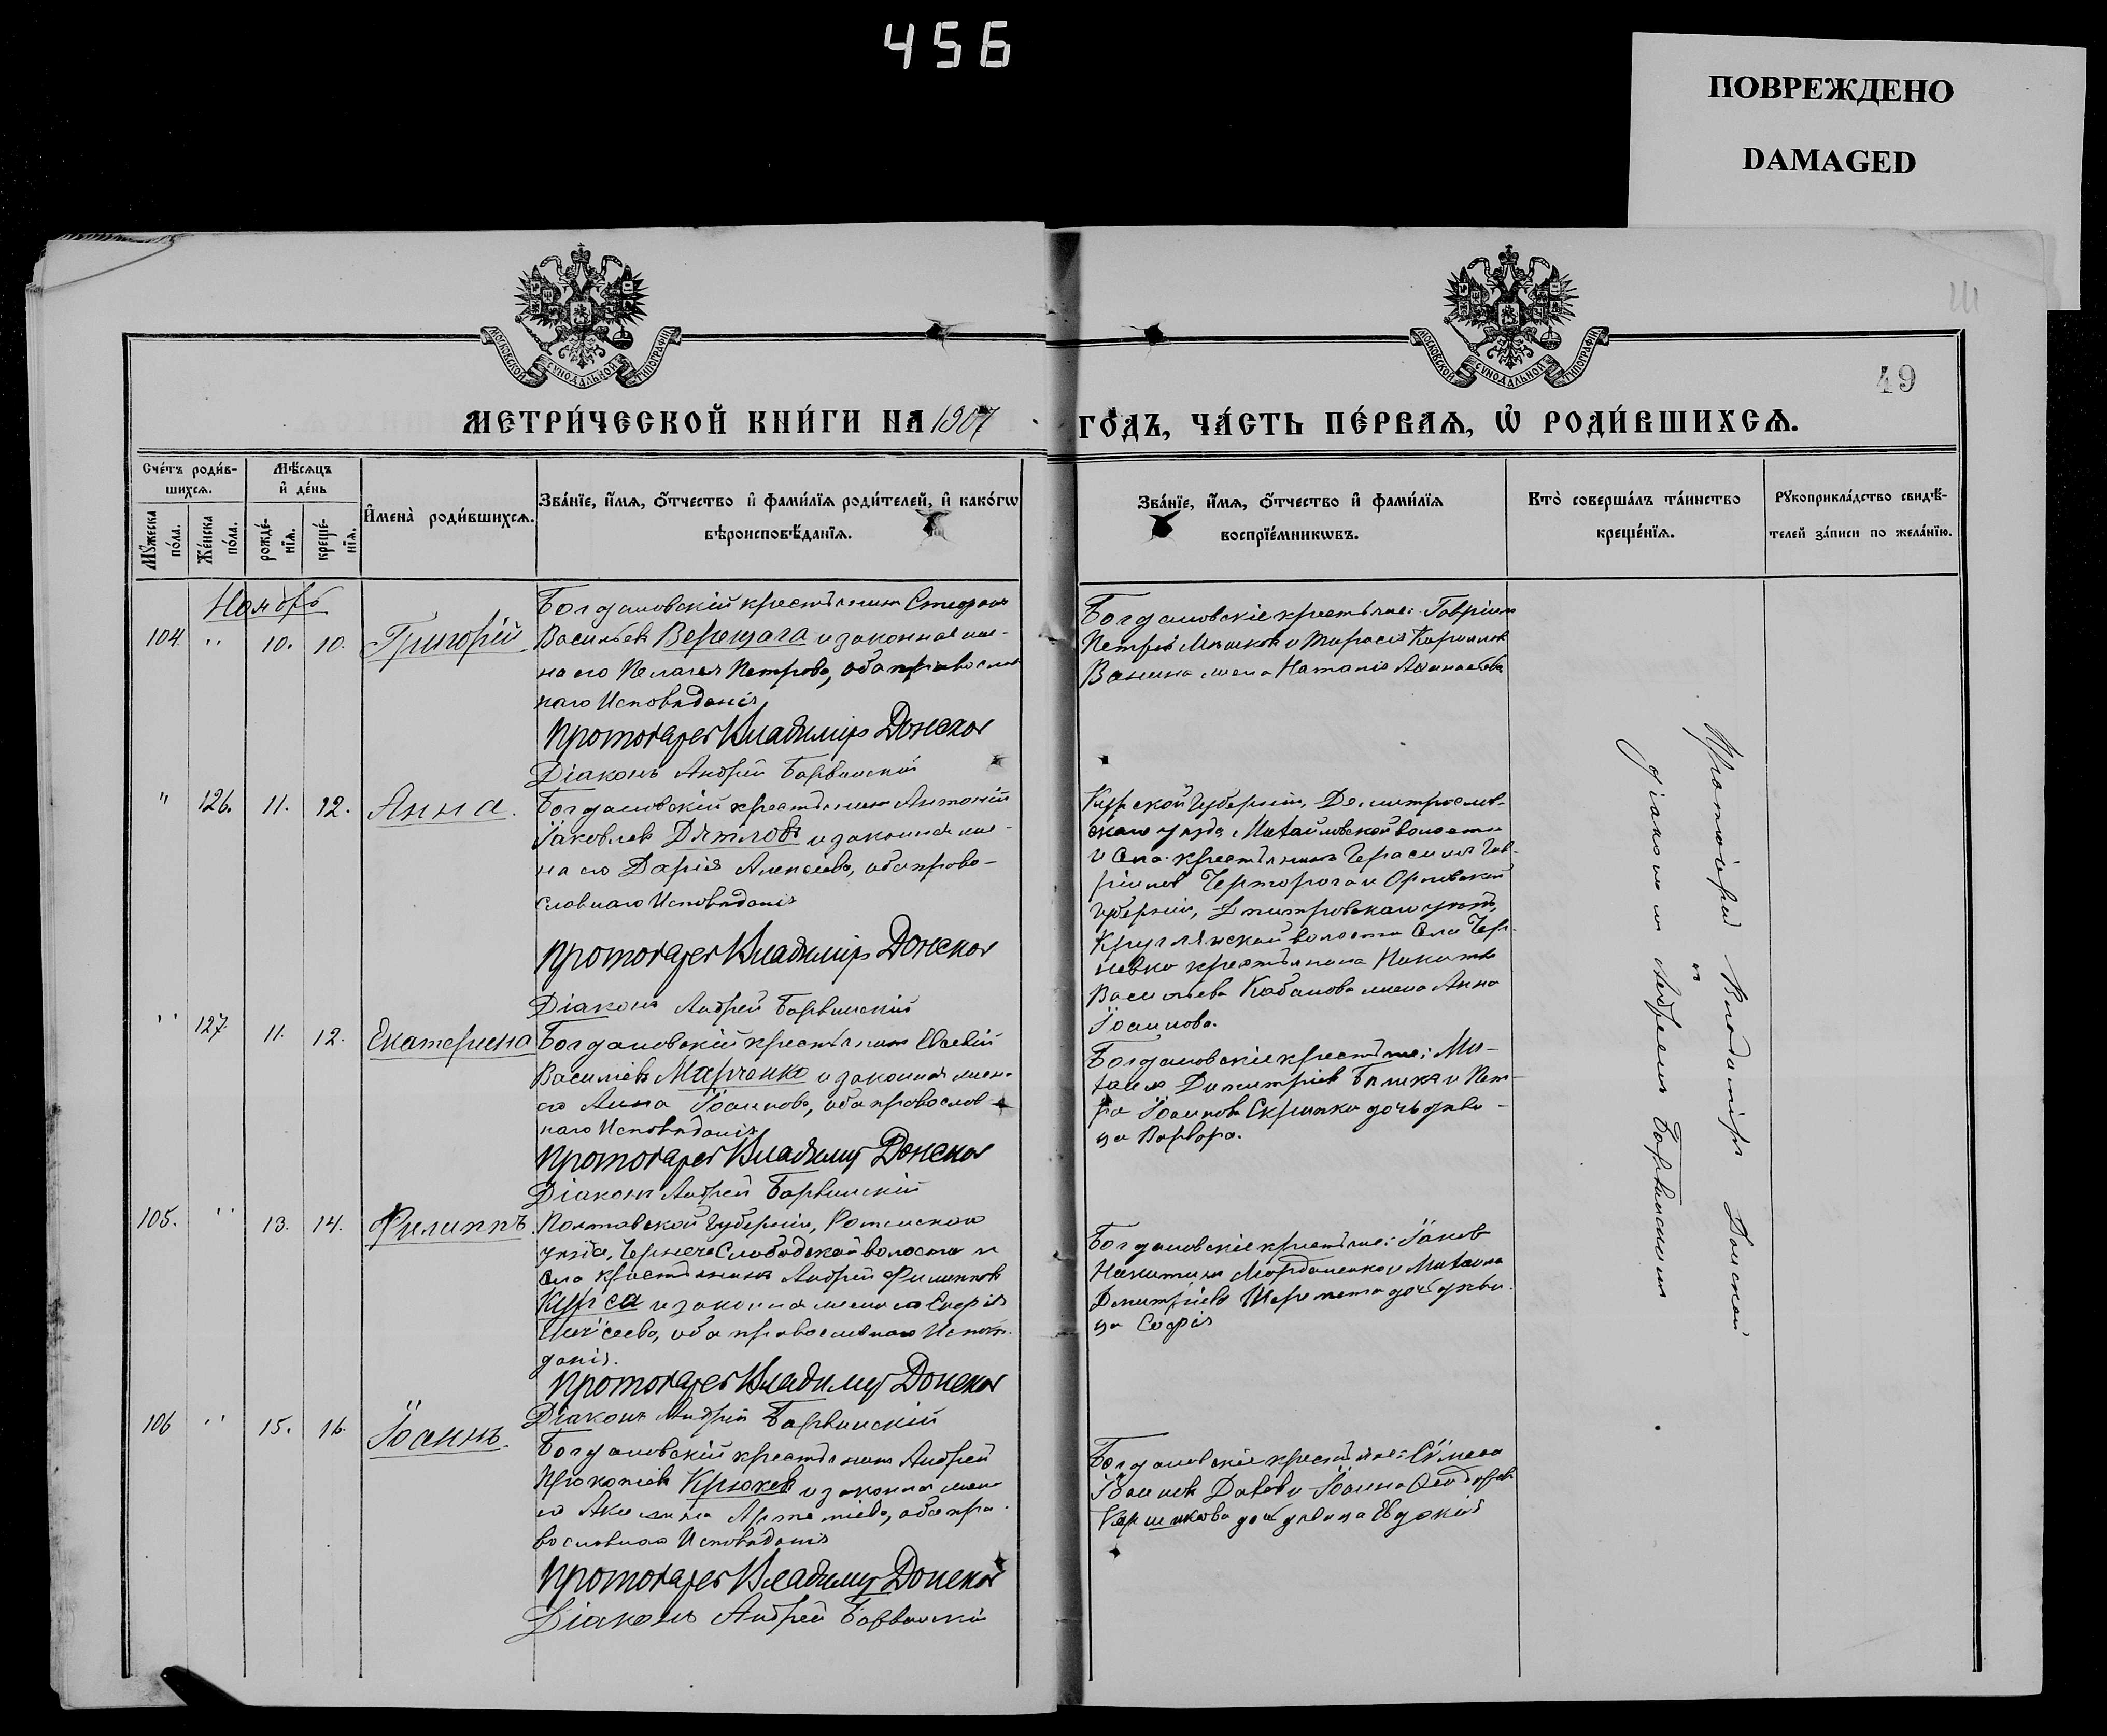 456
ПОВРЕЖДЕНО
DAMAGED
МОСКОВСКОЙ СУНОДАЛЬНОЙ ТИПОГРАФІИ
МОСКОВСКОЙ СУНОДАЛЬНОЙ ТИПОГРАФІИ
49
МЕТРИ́ЧЕСКОЙ КНИ́ГИ НА 1907
ГО́ДЪ, ЧА́СТЬ ПЕ́РВАѦ, Ѡ҆ РОДИ́ВШИХСѦ.
Сче́тъ роди́в-
шихсѧ.
Мꙋ́жеска по́ла.
Же́нска по́ла.
Мѣ́сѧцъ
и҆ де́нь
рожде́-
нїѧ.
креще́-
нїѧ.
И҆мена̀ роди́вшихсѧ.
Зва́нїе, и҆́мѧ, ѻ҆́тчество и҆ фами́лїѧ роди́телей, и҆ како́гѡ
вѣроисповѣ́данїѧ.
Зва́нїе, и҆́мѧ, ѻ҆́тчество и҆ фами́лїѧ
воспрїе́мникѡвъ.
Кто̀ соверша́лъ та́инство
креще́нїѧ.
Рꙋкоприкла́дство свидѣ́-
телей за́писи по жела́нїю.
Ноябрь
104 " 10. 10. Григорій
Богдановскій крестьянинъ Стефанъ
Васильевъ Верещага и законная же-
на его Пелагея Петрова, оба православ
наго Исповѣданія
Протоіерей Владиміръ Донской
Діаконъ Андрей Барвинскій
Богдановскіе крестьяне: Гавріилъ
Петровъ Мошковъ и Тарасія
жена Наталія
" 126. 11. 12. Анна.
Богдановскій крестьянинъ Антоній
Іаковлевъ Дятловъ и законная же-
на его Дарія Алексіева, оба право-
славнаго Исповѣданія
Протоіерей Владиміръ Донской
Діаконъ Андрей Барвинскій
Курской Губерніи, Дмитріевс-
каго уѣзда, Михайловской волости
и села крестьянинъ Герасимъ Гав-
ріиловъ и Орловской
Губерніи, Дмитровскаго уѣзда,
Круглянской волости села Чер-
невки крестьянина Никиты
Васильева Кабанова жена Анна
Іоаннова.
" 127 11. 12. Екатерина
Богдановскій крестьянинъ Евсевій
Василіевъ Марченко и законная жена
его Анна Іоаннова, оба православ
наго Исповѣданія
Протоіерей Владиміръ Донской
Діаконъ Андрей Барвинскій
Богдановскіе крестьяне: Ми-
хаилъ Димитріевъ и Пет-
ра Іоаннова Скрипки дочь дѣви-
ца Варвара.
105. " 13. 14. Филиппъ.
Полтавской Губерніи, Роменскаго
уѣзда, Чернече Слободской волости и
села крестьянинъ Андрей Филипповъ
Курса и законная жена его Софія
Моѵсеева, оба православнаго Исповѣ-
данія.
Протоіерей Владиміръ Донской
Діаконъ Андрей Барвинскій
Богдановскіе крестьяне: Іаковъ
Никитинъ Морданенко и Михаила
Дмитріева Шеремета дочь дѣви-
ца Софія
106 " 15. 16. Іоаннъ.
Богдановскій крестьянинъ Андрей
Прокопіевъ Крюковъ и законная жена
его Акилина Артеміева, оба пра-
вославнаго Исповѣданія
Протоіерей Владиміръ Донской
Діаконъ Андрей Барвинскій
Богдановскіе крестьяне: Сѵмеонъ
Іоанновъ и Іоанна
дочь дѣвица Евдокія
Протоіерей Владиміръ Донской
и
діакономъ Андреемъ Барвинскимъ